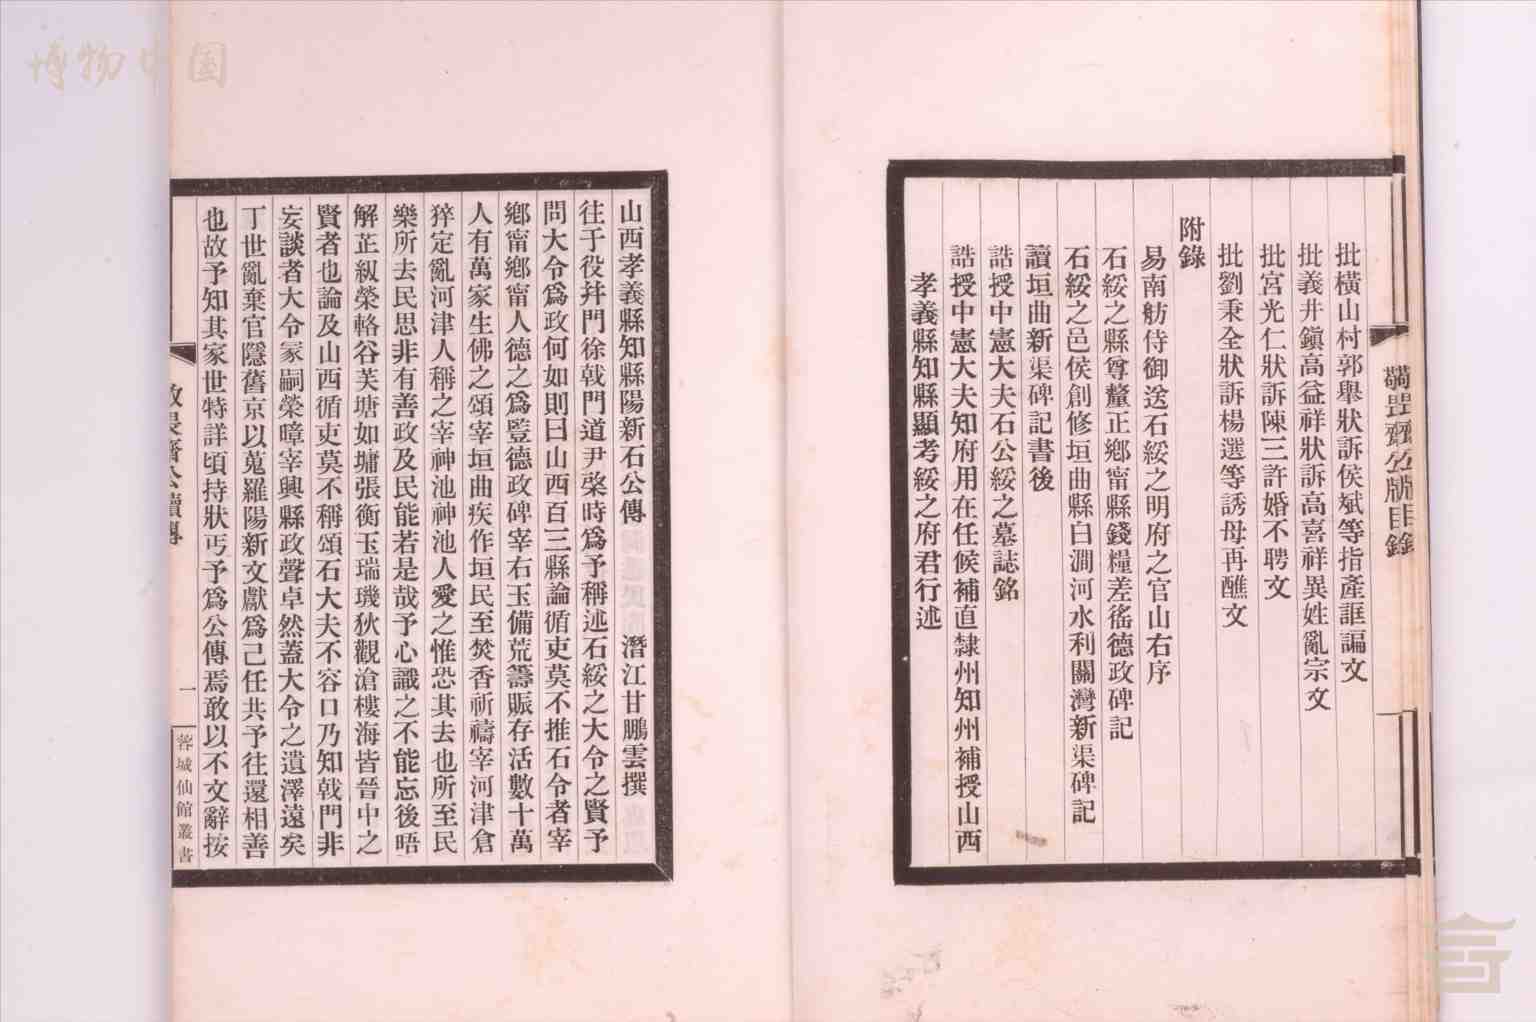 博物中国
批橫山村郭舉狀訴侯斌等指產誆謅文
批義井鎭高益祥狀訴高喜祥異姓亂宗文
批宮光仁狀訴陳三許婚不聘文
批劉秉全狀訴楊選等誘母再醮文
附錄
易南舫侍御送石綏之明府之官山右序
石綏之縣尊釐正鄉甯縣錢糧差徭德政碑記
石綏之邑侯創修垣曲縣白澗河水利關灣新渠碑記
讀垣曲新渠碑記書後
誥授中憲大夫石公綏之墓誌銘
誥授中憲大夫知府用在任候補直隸州知州補授山西
孝義縣知縣顯考綏之府君行述
山西孝義縣知縣陽新石公傳 潛江甘鵬雲撰
往于役幷門徐戟門道尹棨時爲予稱述石綏之大令之賢予
問大令爲政何如則曰山西百三縣論循吏莫不推石令者宰
鄉甯鄉甯人德之爲豎德政碑宰右玉備荒籌賑存活數十萬
人有萬家生佛之頌宰垣曲疾作垣民至焚香祈禱宰河津倉
猝定亂河津人稱之宰神池神池人愛之惟恐其去也所至民
樂所去民思非有善政及民能若是哉予心識之不能忘後晤
解芷紉榮輅谷芙塘如墉張衡玉瑞璣狄觀滄樓海皆晉中之
賢者也論及山西循吏莫不稱頌石大夫不容口乃知戟門非
妄談者大令冢嗣榮暲宰興縣政聲卓然蓋大令之遺澤遠矣
丁世亂棄官隱舊京以蒐羅陽新文獻爲己任共予往還相善
也故予知其家世特詳頃持狀丐予爲公傳焉敢以不文辭按
一
蓉城仙館叢書